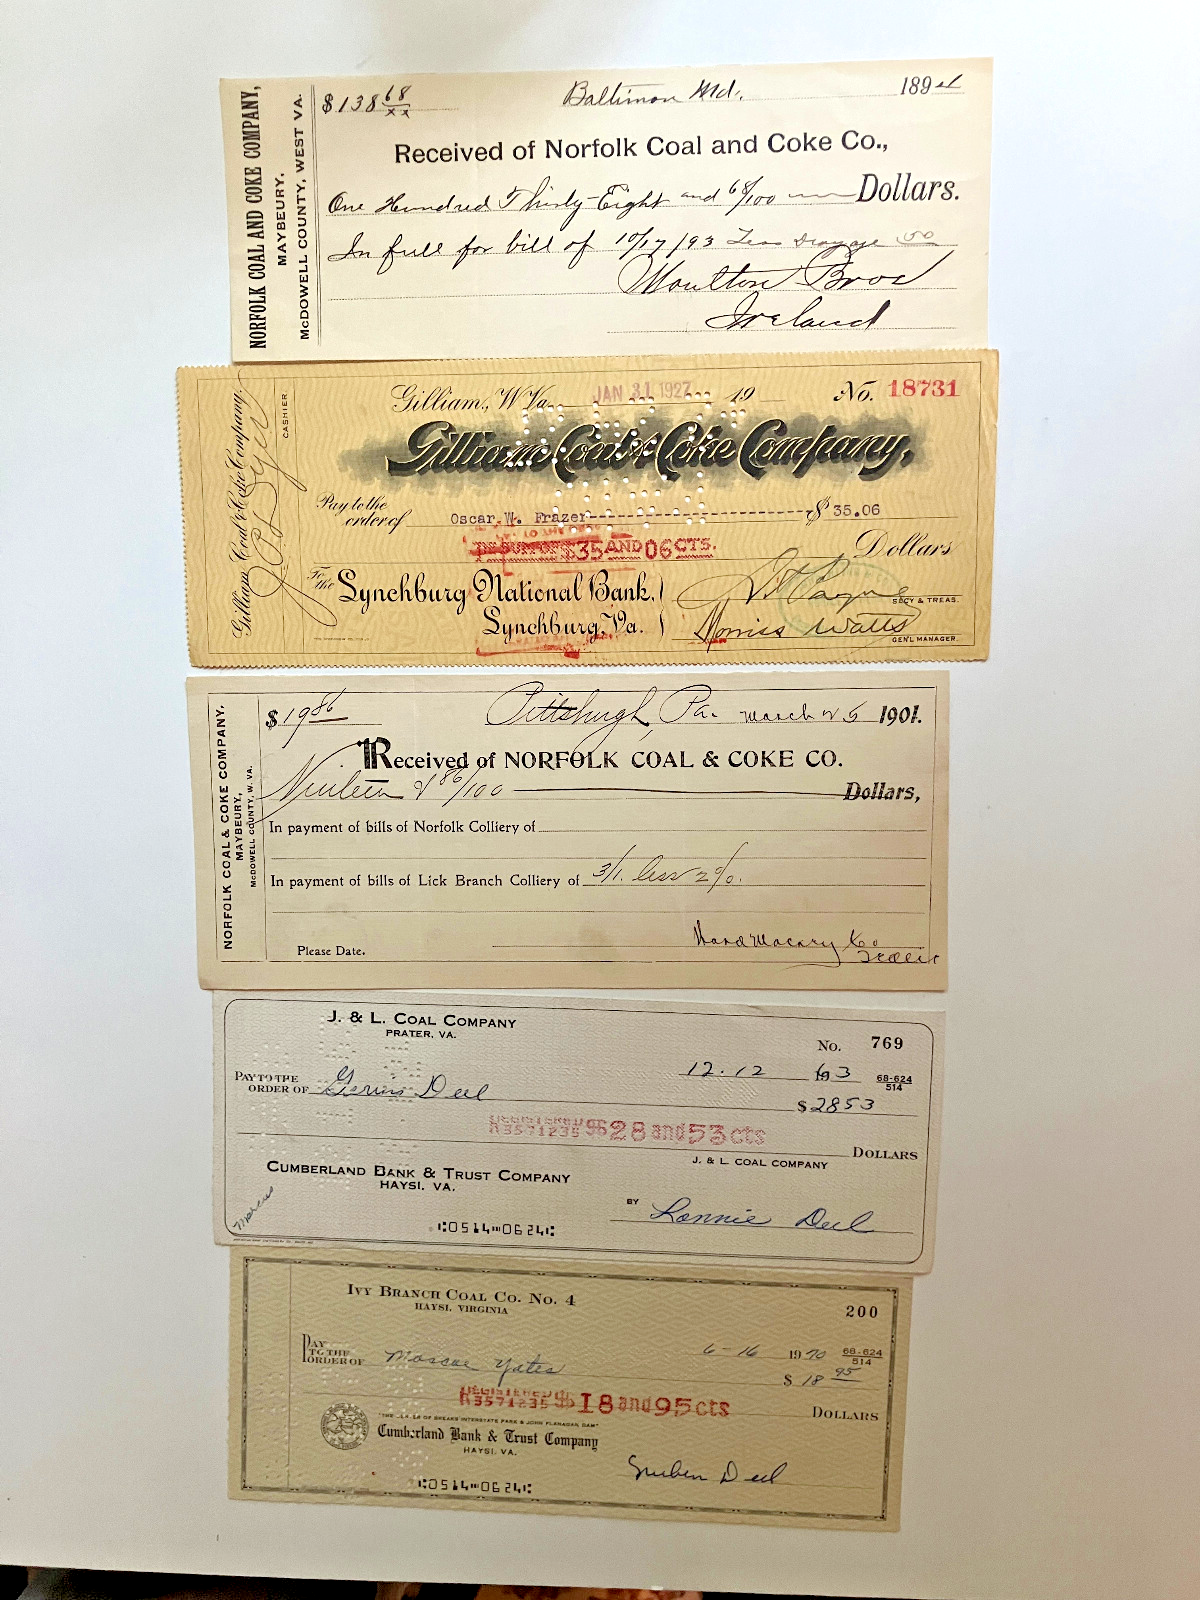 NORFOLK COAL AND COKE COMPANY,
MAYBEURY,
McDOWELL COUNTY, WEST VA.
$138 68/xx
Baltimore Md. 1894
Received of Norfolk Coal and Coke Co.,
One Hundred Thirty-Eight and 68/100 Dollars.
In full for bill of 10/17/93 Less drayage 50
Moulton Bros
Ireland
Gilliam Coal & Coke Company.
CASHIER
Gilliam, W. Va. JAN 31 1927 19 No. 18731
Gilliam Coal & Coke Company,
Pay to the
order of Oscar W. Frazer $ 35.06
THE SUM OF $35 AND 06 CTS. Dollars
To the Lynchburg National Bank,
Lynchburg, Va.
Payne
SECY & TREAS.
Morriss Watts
GEN'L MANAGER.
NORFOLK COAL & COKE COMPANY,
MAYBEURY,
McDOWELL COUNTY, W. VA.
$ 19 86
Pittsburgh, Pa. March 25 1901.
Received of NORFOLK COAL & COKE CO.
Nineteen & 86/100 Dollars,
In payment of bills of Norfolk Colliery of
In payment of bills of Lick Branch Colliery of 3/1. less 2%.
Please Date.
J. & L. COAL COMPANY
PRATER, VA.
No. 769
12.12 1963 68-624
514
PAY TO THE
ORDER OF Gervis Deel $2853
REGISTERED
R3571235 $28 and 53 cts DOLLARS
J. & L. COAL COMPANY
CUMBERLAND BANK & TRUST COMPANY
HAYSI, VA.
BY Lonnie Deel
Marcus
⑆0514⑉0624⑆
IVY BRANCH COAL CO. No. 4
HAYSI, VIRGINIA
200
PAY
TO THE
ORDER OF Moscoe Yates 6-16 1970 68-624
514
$ 18 95
REGISTERED
R3571235 $18 and 95 cts DOLLARS
OF BREAKS INTERSTATE PARK & JOHN FLANAGAN DAM"
Cumberland Bank & Trust Company
HAYSI, VA.
Deel
⑆0514⑉0624⑆